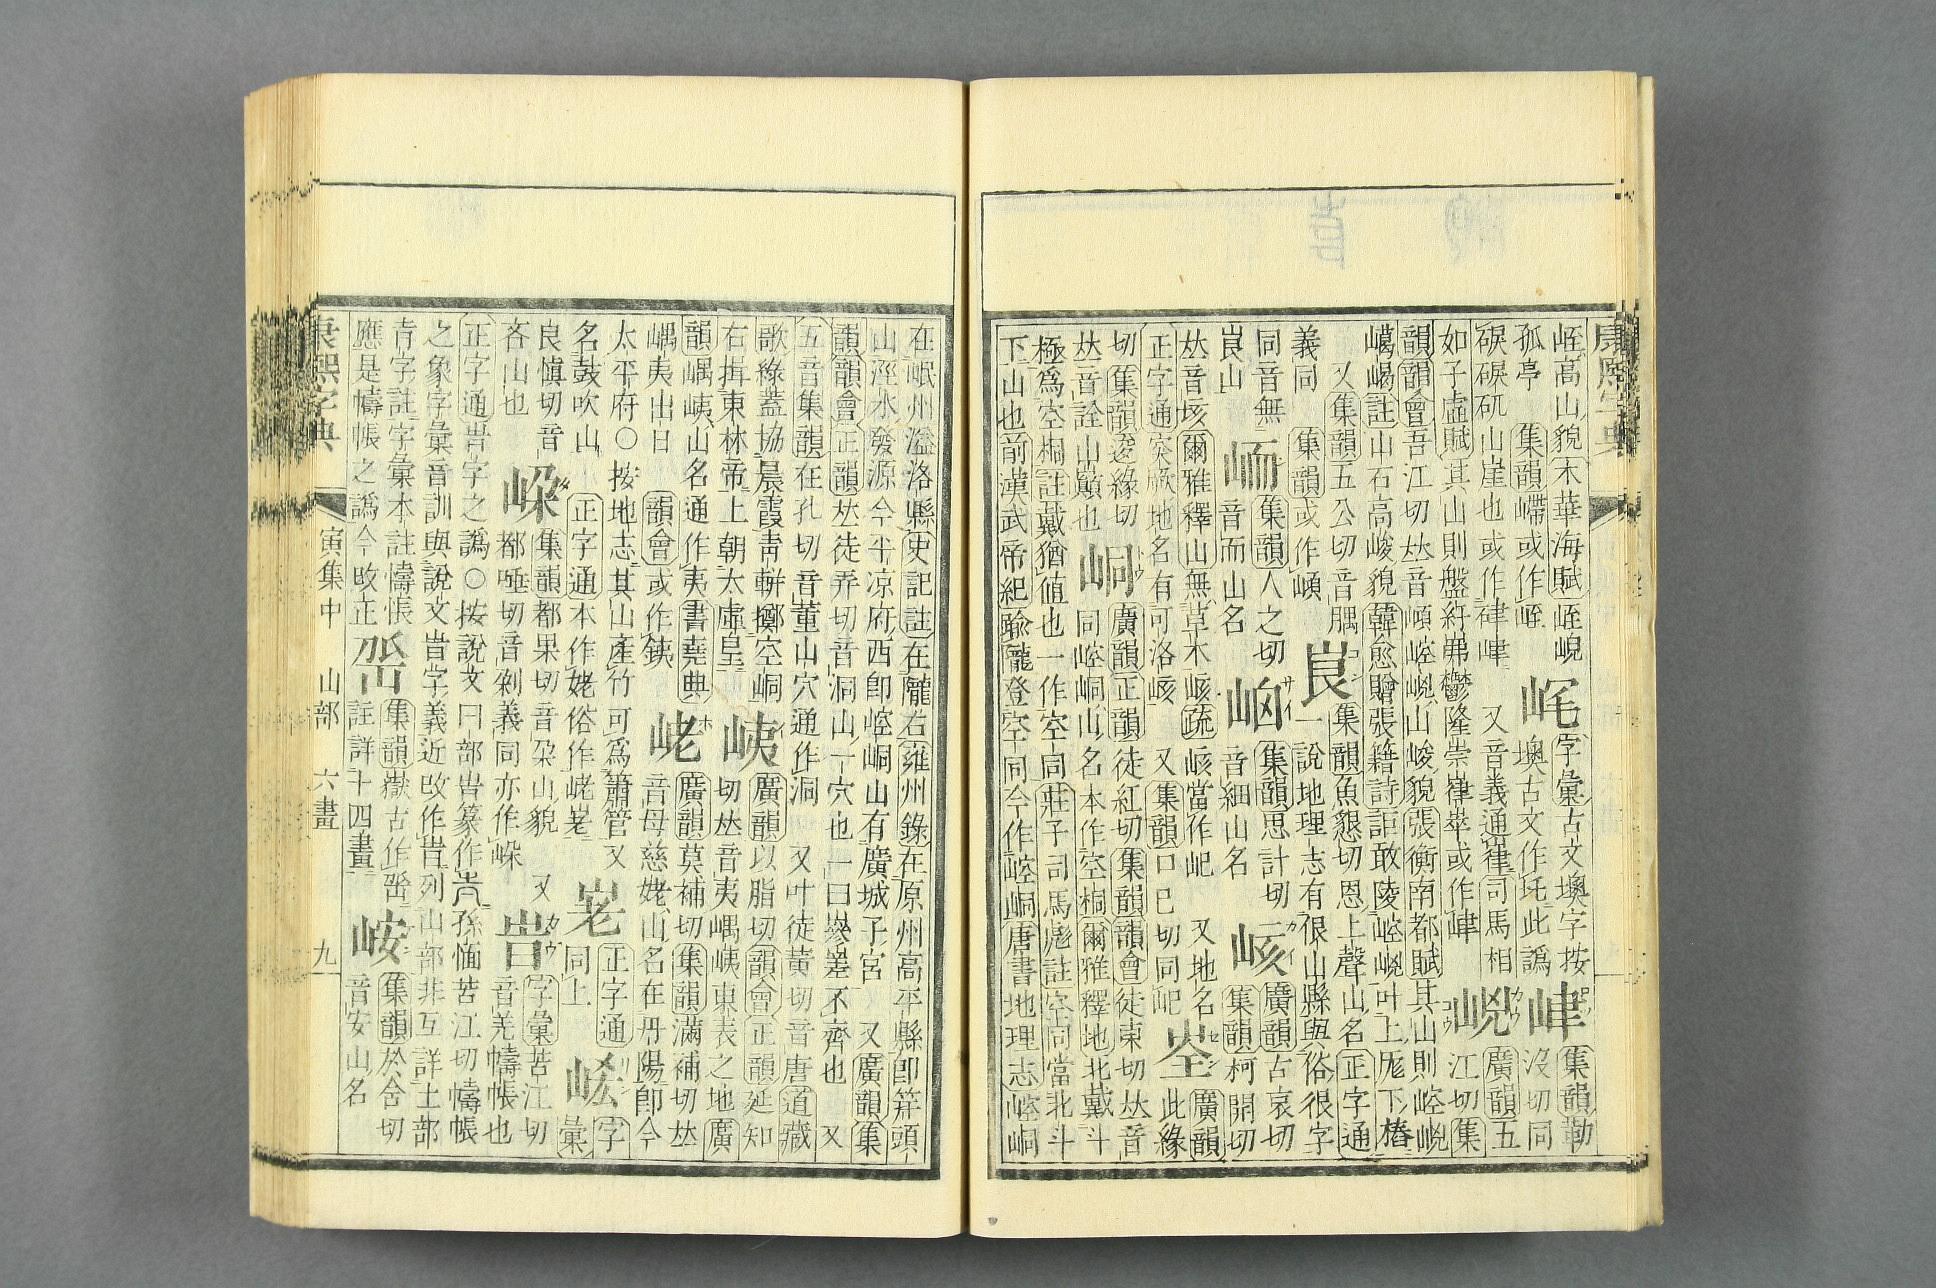 峌高山貌木華海賦峌崼
孤亭 集韻嵽或作峌
字彙古文墺字按
墺古文作圫此譌
峍
集韻勒
沒切同
硉硉矹山崖也或作硉峍 又音義通嵂司馬相
如子虛賦其山則盤紆岪鬱隆崇嵂崒或作峍
㟅
廣韻五
江切集
韻韻會吾江切𠀤音崆㟅山峻貌張衡南都賦其山則崆㟅
嶱嵑註山石高峻貌韓愈贈張籍詩詎敢陵崆㟅叶上厖下樁
又集韻五公切音腢
義同 集韻或作
峎
集韻魚懇切恩上聲山名正字通
一說地理志有很山縣與俗很字
同音無
峎山
峏
集韻人之切
音而山名
集韻思計切
音細山名
峐
廣韻古哀切
集韻柯開切
𠀤音垓爾雅釋山無草木峐疏峐當作屺 又地名
正字通突厥地名有可洛峐 又集韻口巳切同屺
峑
廣韻
此緣
切集韻逡緣切
𠀤音詮山巔也
峒
廣韻正韻徒紅切集韻韻會徒東切𠀤音
同崆峒山名本作空桐爾雅釋地北戴斗
極爲空桐註戴猶値也一作空同莊子司馬彪註空同當北斗
下山也前漢武帝紀踰隴登空同今作崆峒唐書地理志崆峒
在岷州溢洛縣史記註在隴右雍州錄在原州高平縣卽筓頭
山涇水發源今平凉府西卽崆峒山有廣城子宮 又廣韻集
韻韻會正韻𠀤徒弄切音洞山一穴也一曰嵾嵳不齊也 又
五音集韻在孔切音董山穴通作洞 又叶徒黃切音唐道藏
歌綠蓋協晨霞靑軿擲空峒
右揖東林帝上朝太虛皇
峓
廣韻以脂切韻會正韻延知
切𠀤音夷嵎峓東表之地廣
韻嵎峓山名通作夷書堯典
嵎夷出日 韻會或作銕
峔
廣韻莫補切集韻滿補切𠀤
音母慈姥山名在丹陽卽今
太平府○按地志其山產竹可爲簫管又
名鼓吹山 正字通本作姥俗作
正字通
同上
字
彙
良愼切音
吝山也
集韻都果切音朶山貌 又
都唾切音剁義同亦作
字彙苦江切
音羌幬帳也
正字通㞿字之譌○按說文曰部㞿篆作 孫愐苦江切幬帳
之象字彙音訓與說文㞿字義近攺作㞿列山部非互詳土部
靑字註字彙本註幬帳
應是幬帳之譌今攺正
集韻嶽古作
註詳十四畫
峖
集韻於舍切
音安山名
康熙字典 寅集中 山部 六畫 九